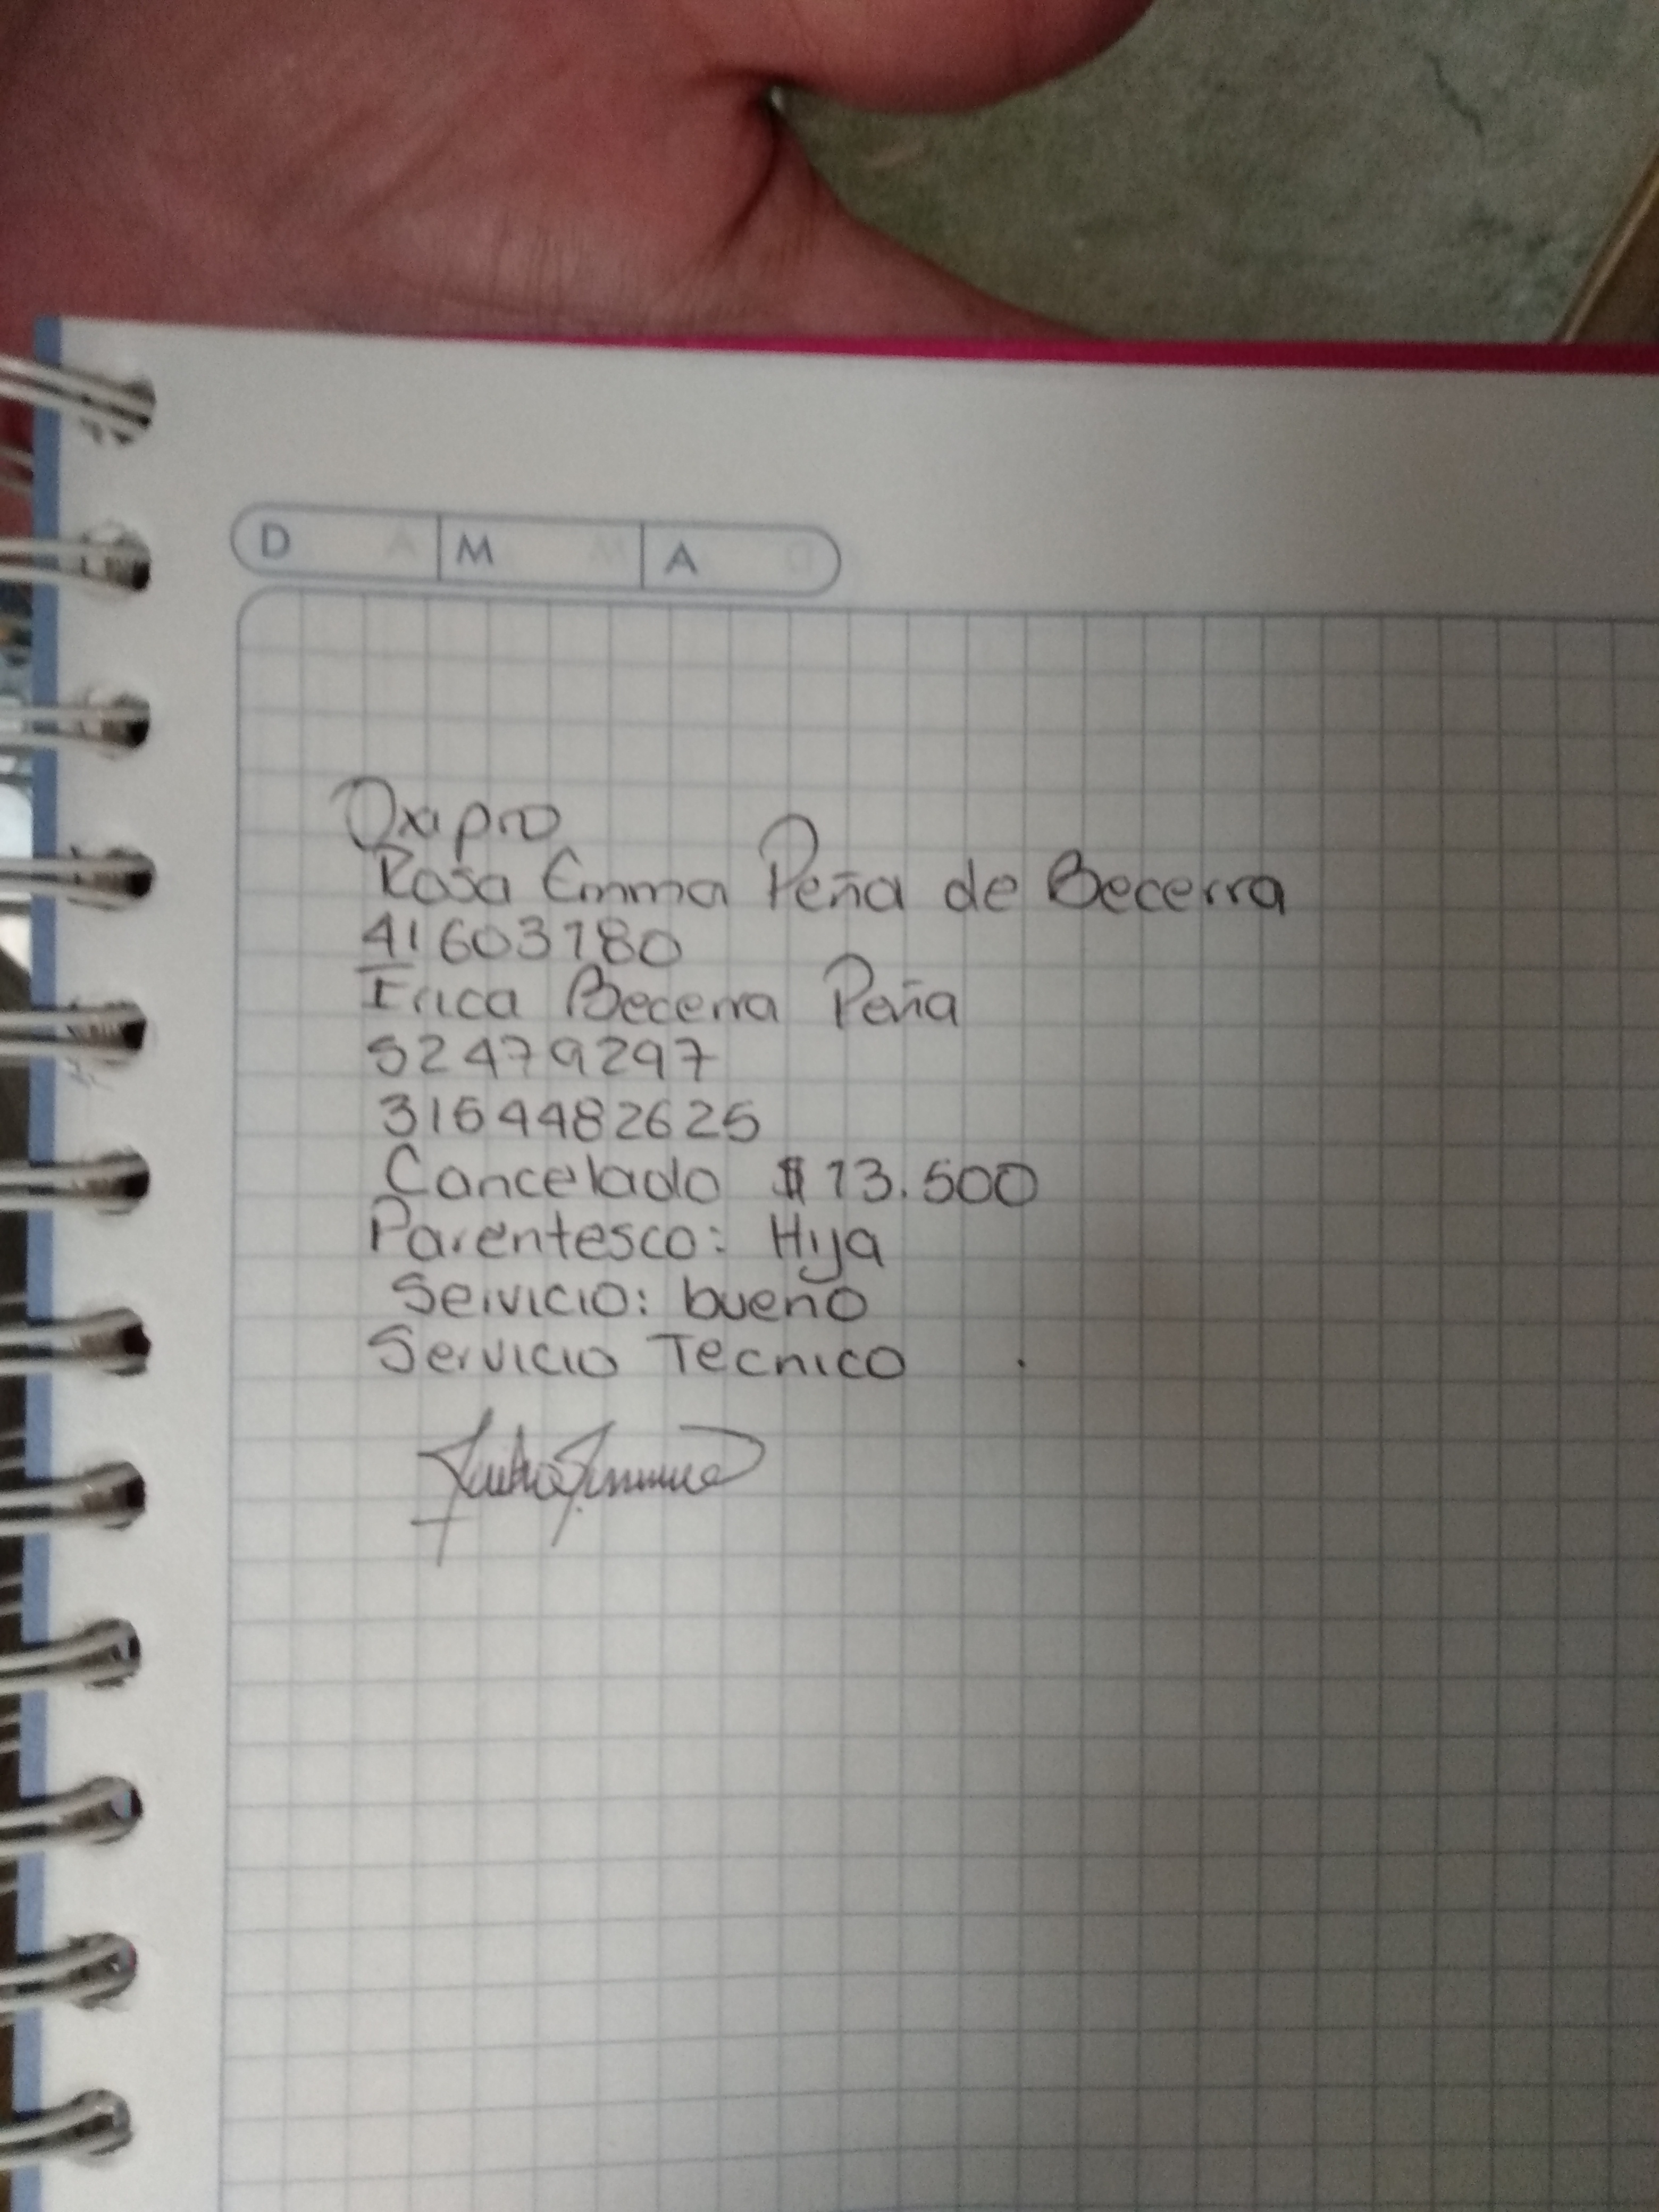 D M A
Oxipro
Rosa Emma Peña de Becerra
41603180
Erica Becerra Peña
52479297
3164482625
Cancelado $13.500
Parentesco: Hija
Servicio: bueno
Servicio Tecnico